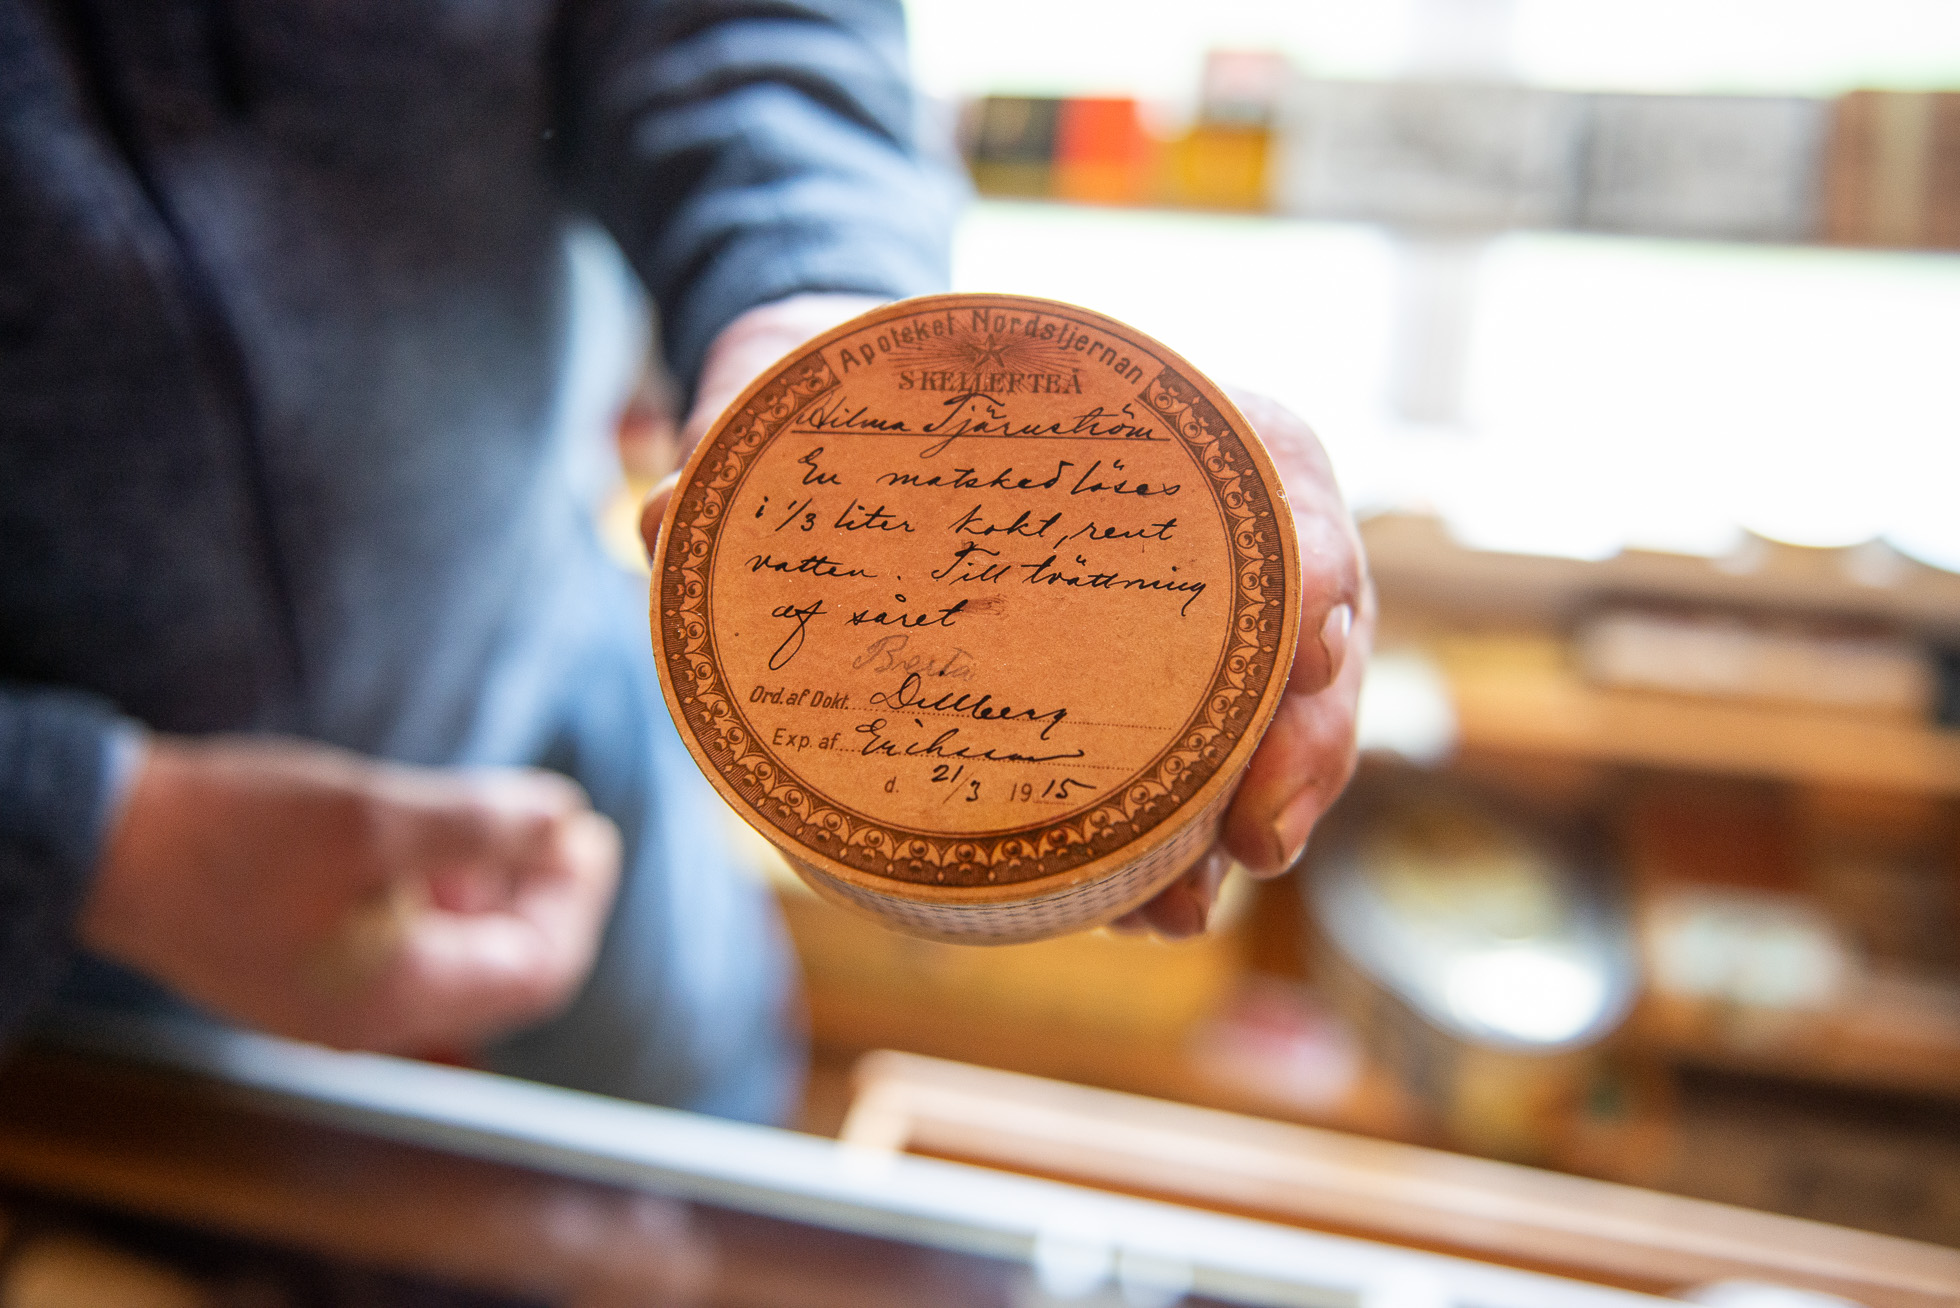 Apoteket Nordstjernan
SKELLEFTEÅ
Hilma Tjärnström
En matsked löses
i 1/3 liter kokt, rent
vatten. Till tvättning
af såret
Ord. af Dokt. Dellberg
Exp. af Ericsson
d. 21/3 1915